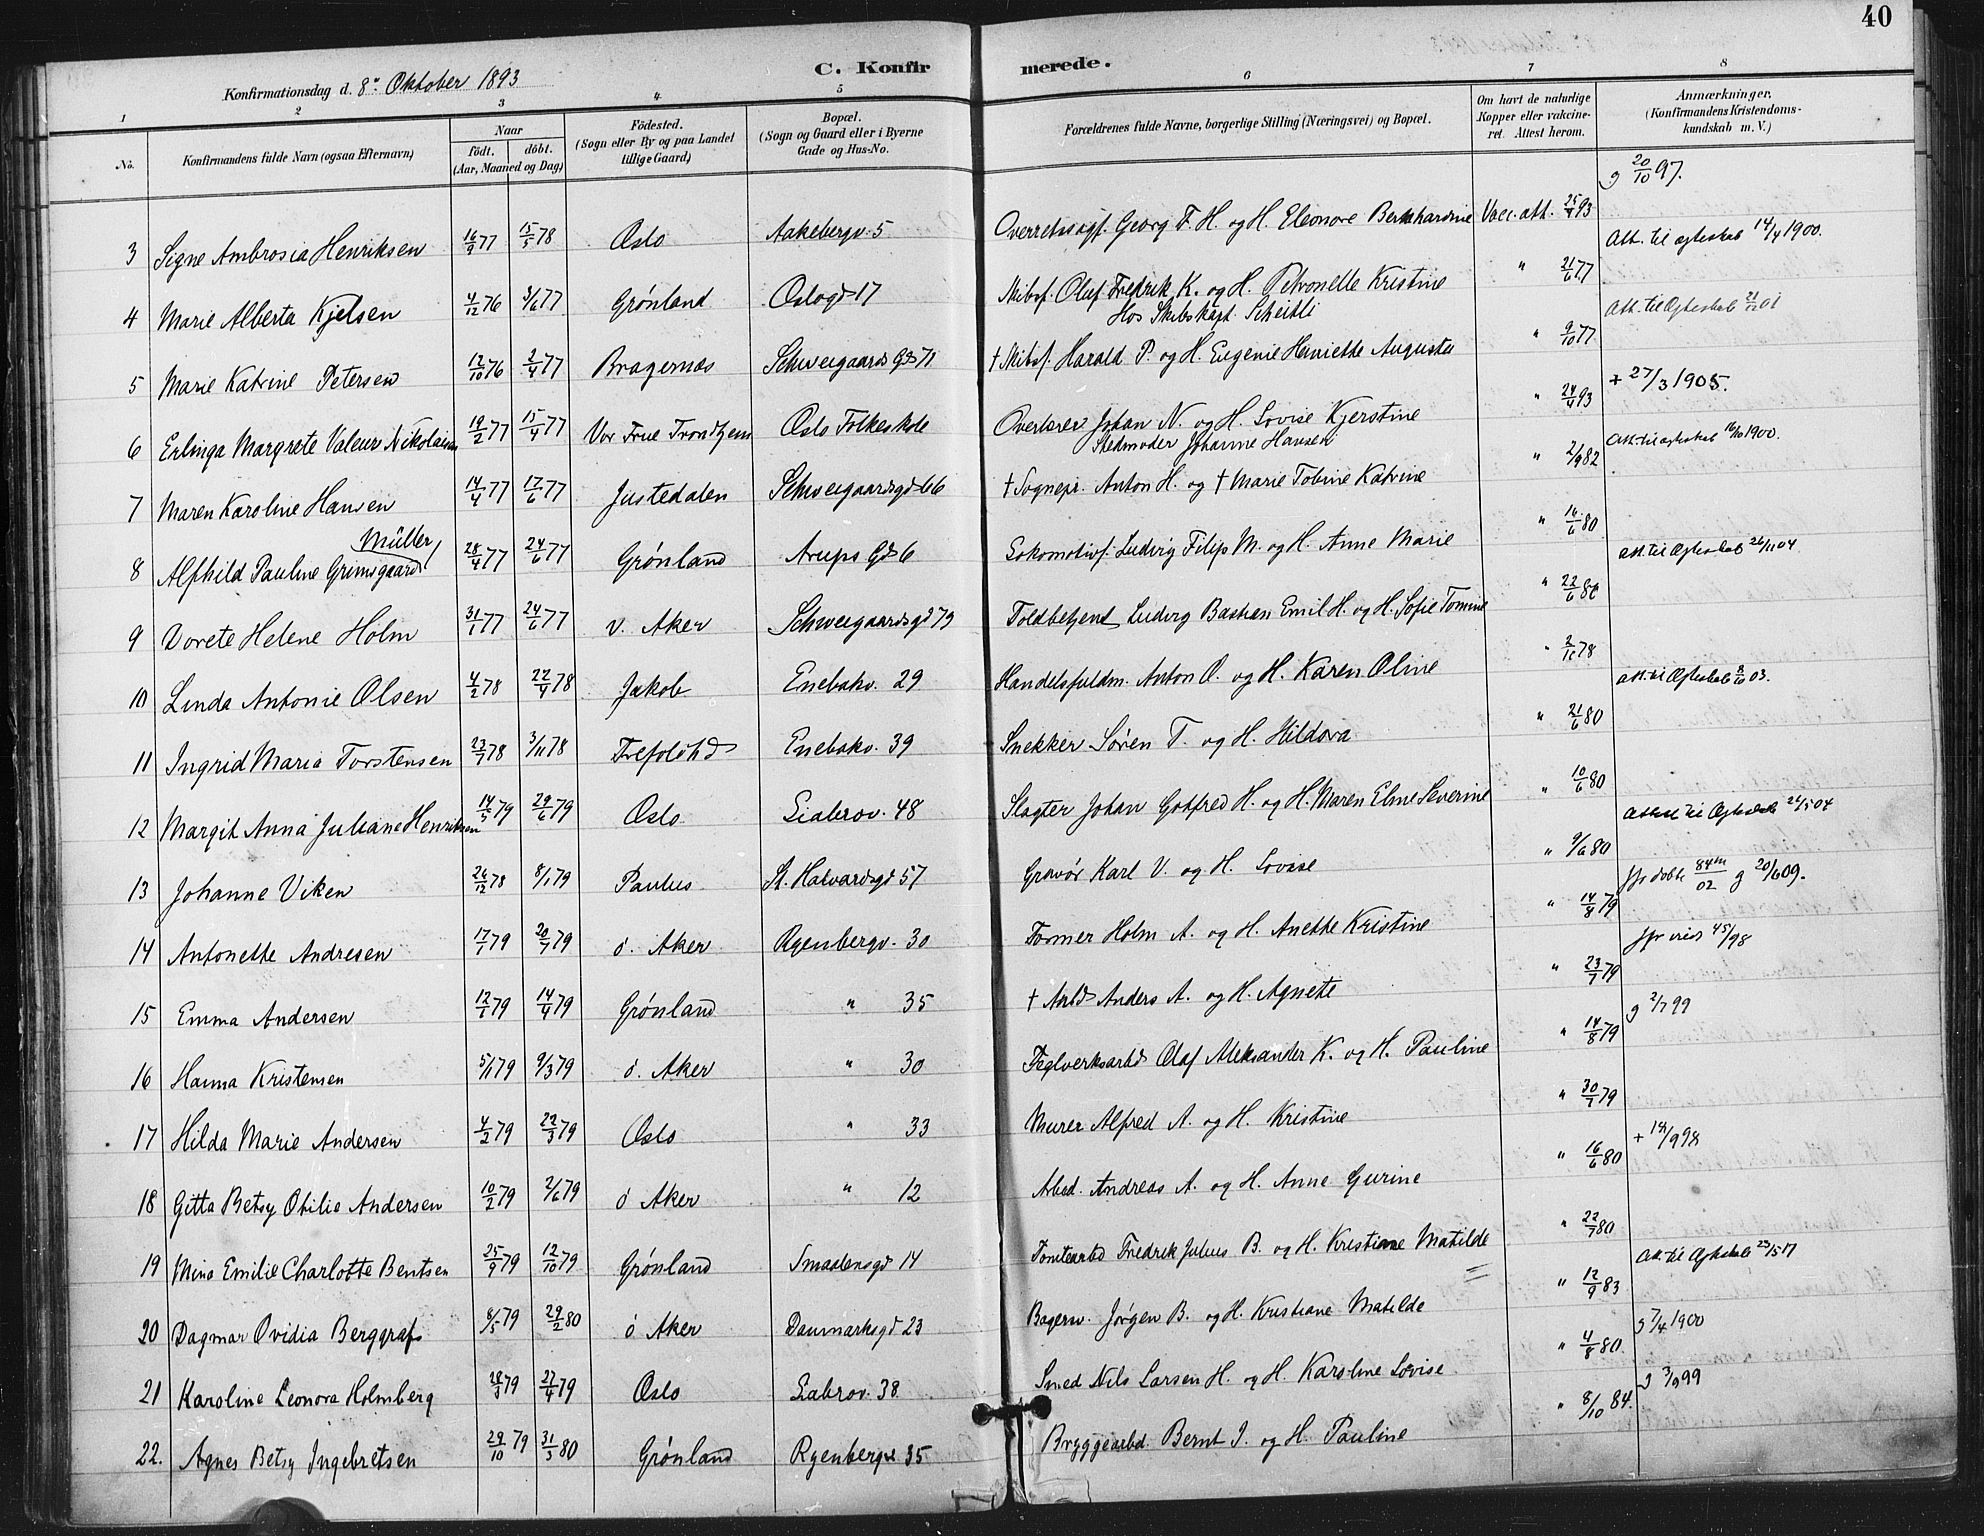 40
C. Konfirmerede.
Konfirmationsdag d. 8de Oktober 1893
1 2 3 4 5 6 7 8
No. Konfirmandens fulde Navn (ogsaa Efternavn) Naar födt. döbt. (Aar, Maaned og Dag) Födested. (Sogn eller By og paa Landet tillige Gaard) Bopæl. (Sogn og Gaard eller i Byerne Gade og Hus-No. Forældrenes fulde Navne, borgerlige Stilling (Næringsvei) og Bopæl. Om havt de naturlige Kopper eller vaccineret. Attest herom. Anmærkninger. (Konfirmandens Kristendomskundskab m. V.)
g 20/10 97.
3 Signe Ambrosia Henriksen 16/9 77 15/5 78 Oslo Aakebergv. 5 Overretssagf. Georg F. H. og H. Eleonore Bernhardine Vacc. att. 25/4 93
Att. til ægteskab 14/4 1900.
4 Marie Alberta Kjelsen 4/12 76 3/6 77 Grønland Oslogd 17 Skibsf. Oluf Fredrik K. og H. Petronelle Kristine " 21/6 77
Hos Skibskapt. Scheitli
Att. til Ægteskab 21/12 01
5 Marie Katrine Petersen 12/10 76 2/4 77 Bragernæs Schweigaards Gd 71 † Skibsf. Harald P. og H. Eugenie Henriette Augusta " 9/10 77
+ 27/3 1905.
6 Erlinga Margrete Valeur Nikolaisen 19/2 77 15/4 77 Vor Frue Trondhjem Oslo Folkeskole Overlærer Johan N. og H. Lovise Kjerstine " 24/4 93
Stedmoder Johanne Hansen
Att. til ægteskab 16/10 1900.
7 Maren Karoline Hansen 14/4 77 17/6 77 Justedalen Schweigaardsgd 66 † Sognepr. Anton H. og † Marie Tobine Katrine " 2/9 82
8 Alfhild Pauline Grimsgaard Müller 28/4 77 24/6 77 Grønland Arups Gd 6 Lokomotivf. Ludvig Filip M. og H. Anne Marie " 16/6 80
att. til Ægteskab 26/11 04.
9 Dorete Helene Holm 31/1 77 24/6 77 v. Aker Schweigaardsgd 79 Toldbetjent Ludvig Bastian Emil H. og H. Sofie Tomine " 22/6 80
10 Linda Antonie Olsen 4/2 78 22/4 78 Jakob Enebakv. 29 Handelsfuldm. Anton O. og H. Karen Oline " 78
att. til Ægteskab 8/10 03.
11 Ingrid Maria Torstensen 23/7 78 3/11 78 Enebakv. 39 Snekker Søren T. og H. Hildora " 21/6 80
12 Margit Anna Juliane Henriksen 14/5 79 29/6 79 Oslo Liabrov. 48 Slagter Johan Gotfred H. og H. Maren Eline Severine " 10/6 80
Attest til Ægteskab 24/5 04
13 Johanne Viken 26/12 78 8/1 79 Paulus St. Halvardsgd 57 Gravør Karl V. og H. Lovise " 9/6 80
jfr døbte 84m/02 g 20/6 09.
14 Antonette Andresen 17/1 79 20/7 79 ø. Aker Ryenbergv. 30 Former Holm A. og H. Anette Kristine " 14/8 79
jfr vied 45/98
15 Emma Andersen 12/1 79 14/4 79 Grønland " 35 † Arbd Anders A. og H. Agnete " 23/7 79
g 2/7 99
16 Hanna Kristensen 5/1 79 9/3 79 ø. Aker " 30 Teglverksarbd Olaf Aleksander K. og H. Pauline " 14/8 79
17 Hilda Marie Andersen 4/2 79 22/3 79 Oslo " 33 Murer Alfred A. og H. Kristine " 30/7 79
+ 14/9 98
18 Gitta Betsy Otilie Andersen 10/2 79 2/6 79 ø Aker " 12 Arbed. Andreas A. og H. Anne Gurine " 16/6 80
19 Mina Emilie Charlotte Bentsen 25/9 79 12/10 79 Grønland Smaalensgd 14 Tomtearbd Fredrik Julius B. og H. Kristiane Matilde " 22/7 80
Att. til Ægteskab 23/5 17
20 Dagmar Ovidia Berggraf 8/5 79 29/2 80 ø Aker Danmarksgd 23 Bagersv. Jørgen B. og H. Kristiane Matilde " 12/9 83
g 7/4 1900
21 Karoline Leonora Holmberg 28/3 79 27/4 79 Oslo Liabrov. 38 Smed Nils Larsen H. og H. Karoline Lovise " 4/8 80
g 3/9 99
22. Agnes Betsy Ingebretsen 29/10 79 31/3 80 Grønland Ryenbergv 35 Bryggearbd. Bernt I. og H. Pauline " 8/10 84.